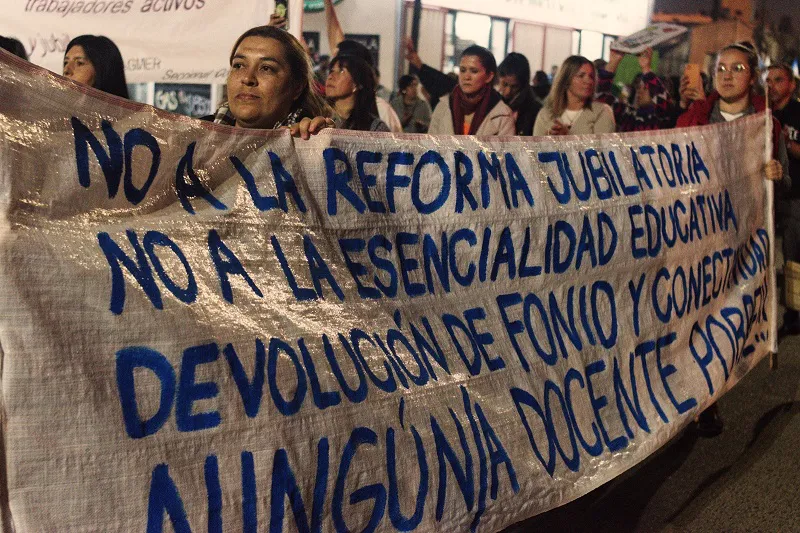 trabajadores activos
NO A LA REFORMA JUBILATORIA
NO A LA ESENCIALIDAD EDUCATIVA
DEVOLUCIÓN DE FONIO Y CONECTIVIDAD
NINGÚN/A DOCENTE POBRE!!!